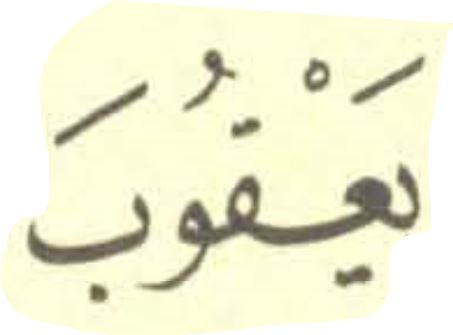 يَعْقُوبَ